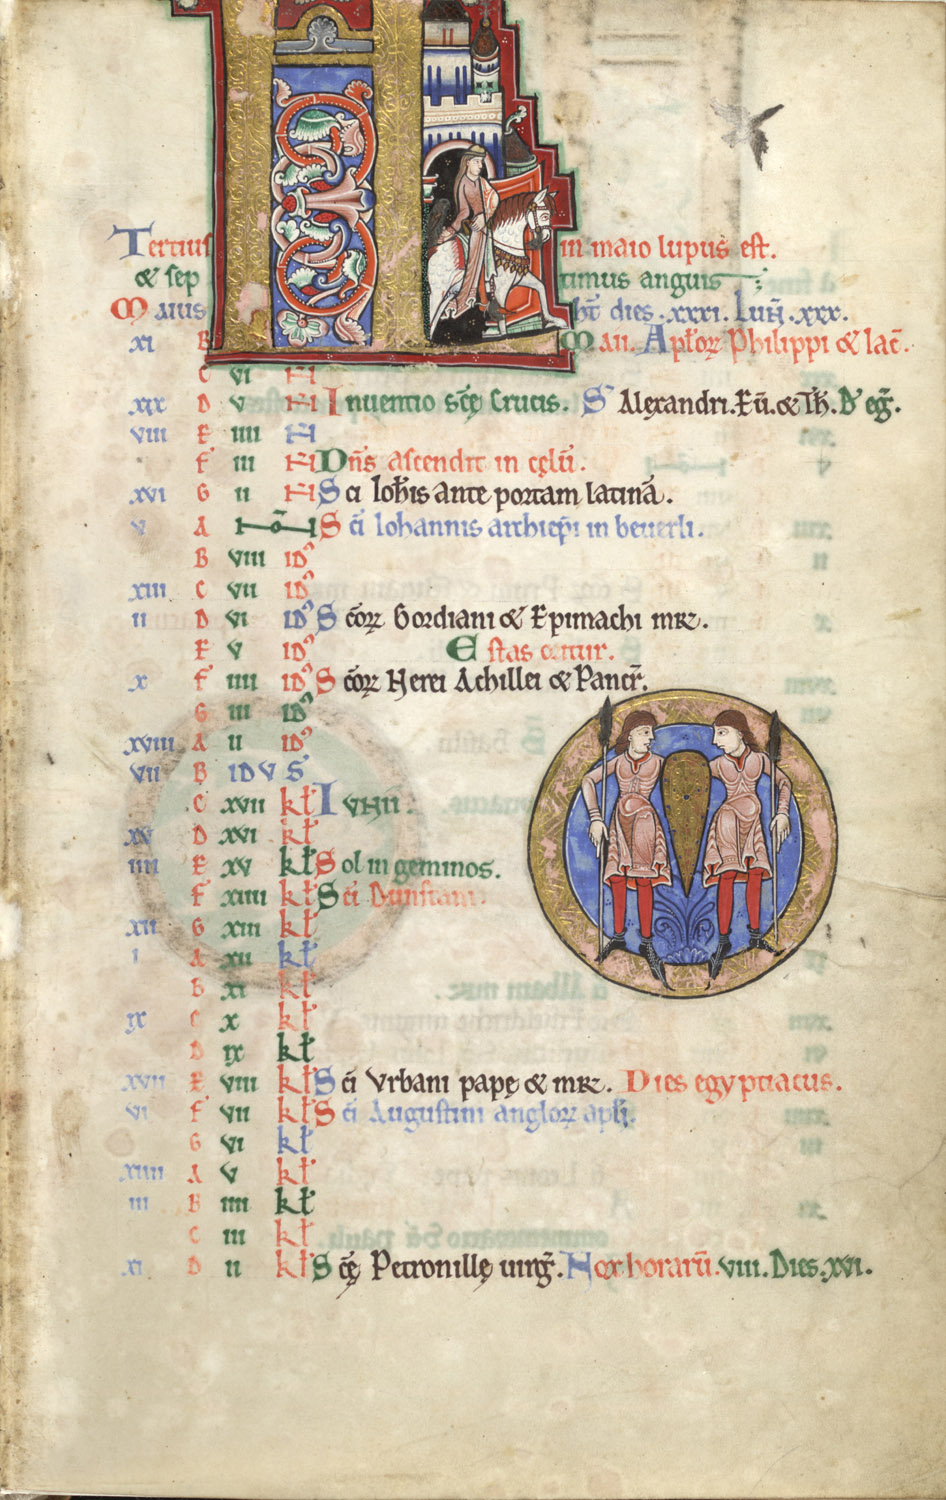 Tertius in maio lupus est.
& sep timus anguis
Maius hт dies .xxxi. Luн .xxx.
xi B Maii. Apłoꝝ Philippi & Iac̄.
C vi H
xix D v H Inuentio sc̄ę Crucis. S Alexandri. Eū. & Th. D' eḡ.
viii E iiii H
F iii H Dn̄s ascendit in cęlū.
xvi G ii H Sci Ioħis ante portam latinā.
v A Non Sc̄i Iohannis archiep̄i in beuerli.
B viii id'
xiii C vii id'
ii D vi id' Sc̄oꝝ Gordiani & Epimachi mr̄.
E v id' Estas oritur.
x F iiii id' Sc̄oꝝ Nerei Achillei & Pancr̄.
G iii id'
xviii A ii id'
vii B IDVS
C xvii kł Ivnii
xv D xvi kł
iiii E xv kł Sol in geminos.
F xiiii kł Sc̄i Dunstani.
xii G xiii kł
i A xii kł
B xi kł
ix C x kł
D ix kł
xvii E viii kł Sc̄i Vrbani papę & mr̄. Dies egyptiacus.
vi F vii kł Sc̄i Augustini angloꝝ apłi.
G vi kł
xiiii A v kł
iii B iiii kł
C iii kł
xi D ii kł Sc̄ę Petronillę uirḡ. Nox horarū .viii. Dies .xvi.